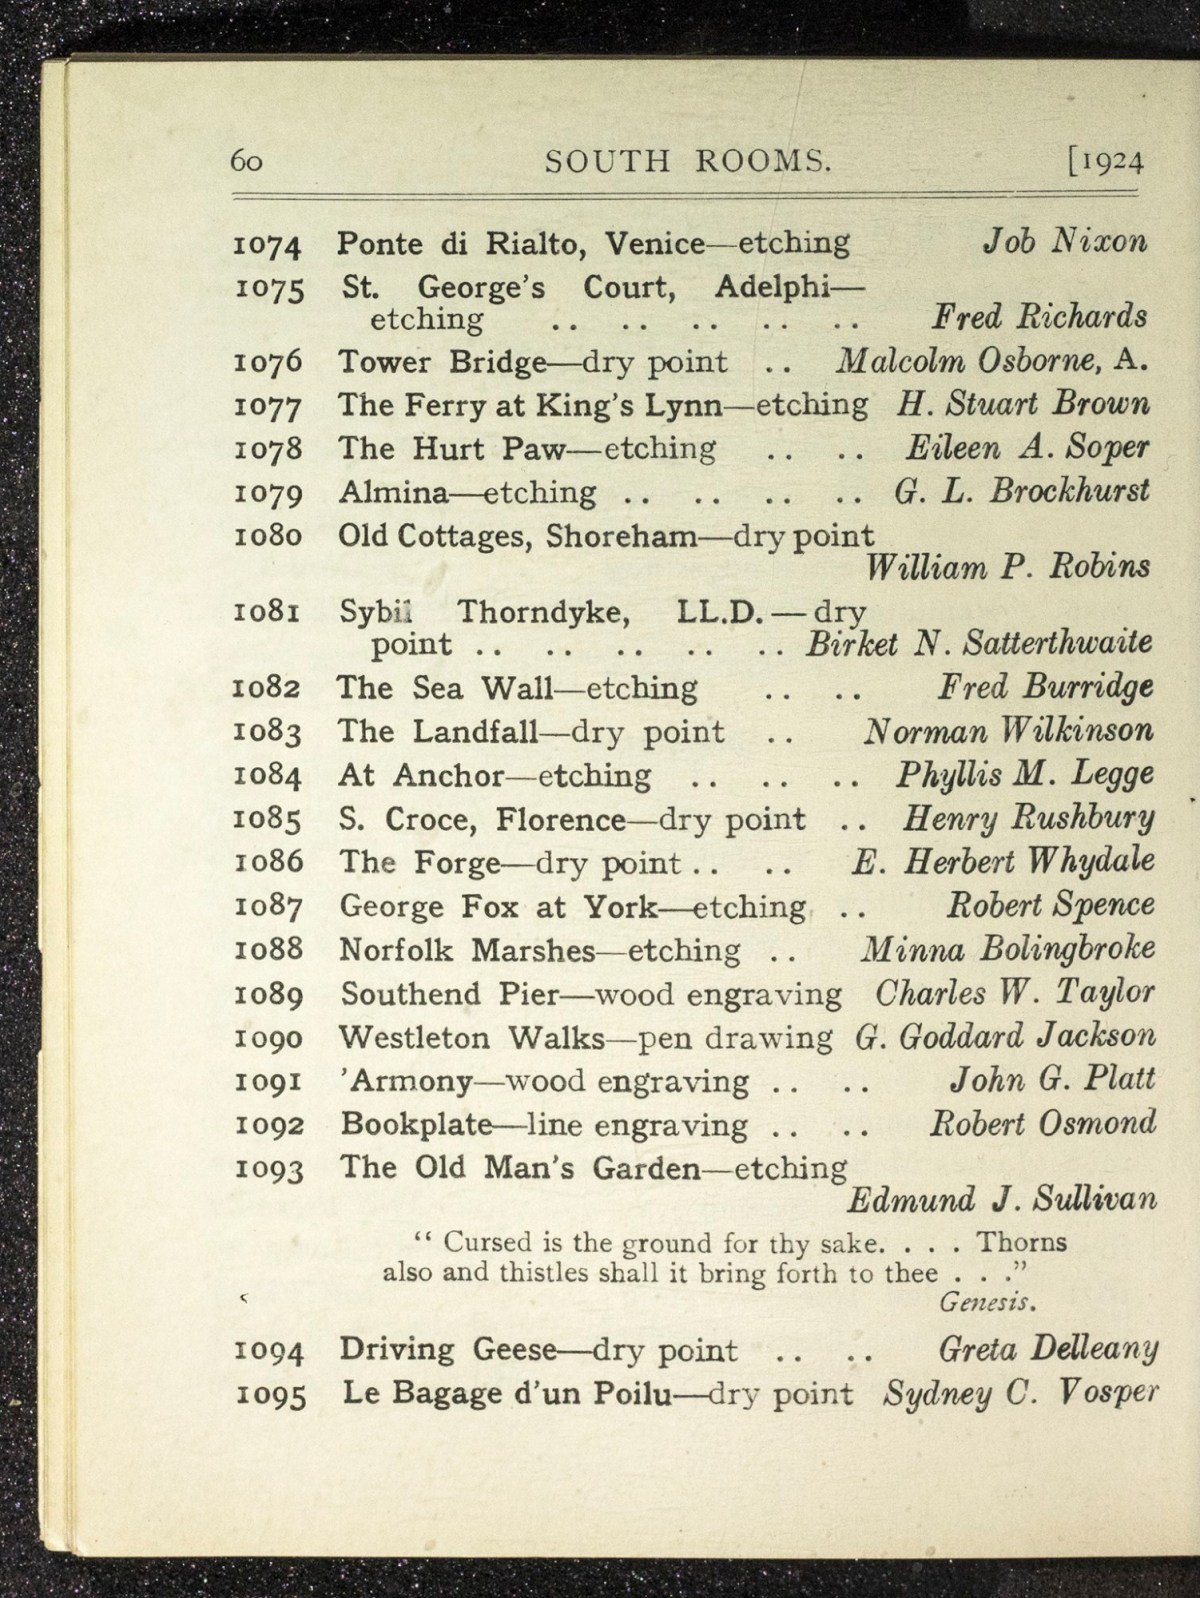 60 SOUTH ROOMS. [1924
1074 Ponte di Rialto, Venice—etching Job Nixon
1075 St. George's Court, Adelphi—
etching .. .. .. .. .. Fred Richards
1076 Tower Bridge—dry point .. Malcolm Osborne, A.
1077 The Ferry at King's Lynn—etching H. Stuart Brown
1078 The Hurt Paw—etching .. .. Eileen A. Soper
1079 Almina—etching .. .. .. .. G. L. Brockhurst
1080 Old Cottages, Shoreham—dry point
William P. Robins
1081 Sybil Thorndyke, LL.D.—dry
point .. .. .. .. .. Birket N. Satterthwaite
1082 The Sea Wall—etching .. .. Fred Burridge
1083 The Landfall—dry point .. Norman Wilkinson
1084 At Anchor—etching .. .. .. Phyllis M. Legge
1085 S. Croce, Florence—dry point .. Henry Rushbury
1086 The Forge—dry point .. .. E. Herbert Whydale
1087 George Fox at York—etching .. Robert Spence
1088 Norfolk Marshes—etching .. Minna Bolingbroke
1089 Southend Pier—wood engraving Charles W. Taylor
1090 Westleton Walks—pen drawing G. Goddard Jackson
1091 'Armony—wood engraving .. .. John G. Platt
1092 Bookplate—line engraving .. .. Robert Osmond
1093 The Old Man's Garden—etching
Edmund J. Sullivan
“ Cursed is the ground for thy sake. . . . Thorns
also and thistles shall it bring forth to thee . . .”
Genesis.
1094 Driving Geese—dry point .. .. Greta Delleany
1095 Le Bagage d'un Poilu—dry point Sydney C. Vosper